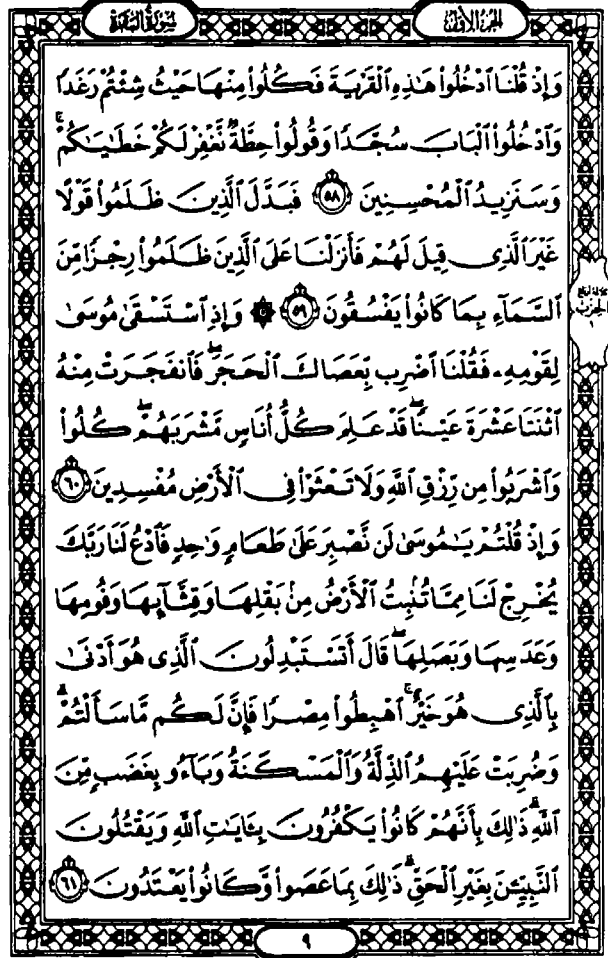 سورة البقرة
الجزء الأول
وَإِذْ قُلْنَا ٱدْخُلُوا۟ هَـٰذِهِ ٱلْقَرْيَةَ فَكُلُوا۟ مِنْهَا حَيْثُ شِئْتُمْ رَغَدًا
وَٱدْخُلُوا۟ ٱلْبَابَ سُجَّدًا وَقُولُوا۟ حِطَّةٌ نَّغْفِرْ لَكُمْ خَطَـٰيَـٰكُمْ ۚ
وَسَنَزِيدُ ٱلْمُحْسِنِينَ ٥٨ فَبَدَّلَ ٱلَّذِينَ ظَلَمُوا۟ قَوْلًا
غَيْرَ ٱلَّذِى قِيلَ لَهُمْ فَأَنزَلْنَا عَلَى ٱلَّذِينَ ظَلَمُوا۟ رِجْزًا مِّنَ
ٱلسَّمَآءِ بِمَا كَانُوا۟ يَفْسُقُونَ ٥٩ ۞ وَإِذِ ٱسْتَسْقَىٰ مُوسَىٰ
لِقَوْمِهِۦ فَقُلْنَا ٱضْرِب بِّعَصَاكَ ٱلْحَجَرَ ۖ فَٱنفَجَرَتْ مِنْهُ
ٱثْنَتَا عَشْرَةَ عَيْنًا ۖ قَدْ عَلِمَ كُلُّ أُنَاسٍ مَّشْرَبَهُمْ ۖ كُلُوا۟
وَٱشْرَبُوا۟ مِن رِّزْقِ ٱللَّهِ وَلَا تَعْثَوْا۟ فِى ٱلْأَرْضِ مُفْسِدِينَ ٦٠
وَإِذْ قُلْتُمْ يَـٰمُوسَىٰ لَن نَّصْبِرَ عَلَىٰ طَعَامٍ وَٰحِدٍ فَٱدْعُ لَنَا رَبَّكَ
يُخْرِجْ لَنَا مِمَّا تُنۢبِتُ ٱلْأَرْضُ مِنۢ بَقْلِهَا وَقِثَّآئِهَا وَفُومِهَا
وَعَدَسِهَا وَبَصَلِهَا ۖ قَالَ أَتَسْتَبْدِلُونَ ٱلَّذِى هُوَ أَدْنَىٰ
بِٱلَّذِى هُوَ خَيْرٌ ۚ ٱهْبِطُوا۟ مِصْرًا فَإِنَّ لَكُم مَّا سَأَلْتُمْ ۗ
وَضُرِبَتْ عَلَيْهِمُ ٱلذِّلَّةُ وَٱلْمَسْكَنَةُ وَبَآءُو بِغَضَبٍ مِّنَ
ٱللَّهِ ۗ ذَٰلِكَ بِأَنَّهُمْ كَانُوا۟ يَكْفُرُونَ بِـَٔايَـٰتِ ٱللَّهِ وَيَقْتُلُونَ
ٱلنَّبِيِّـۧنَ بِغَيْرِ ٱلْحَقِّ ۗ ذَٰلِكَ بِمَا عَصَوا۟ وَّكَانُوا۟ يَعْتَدُونَ ٦١
الحزب
١
٩